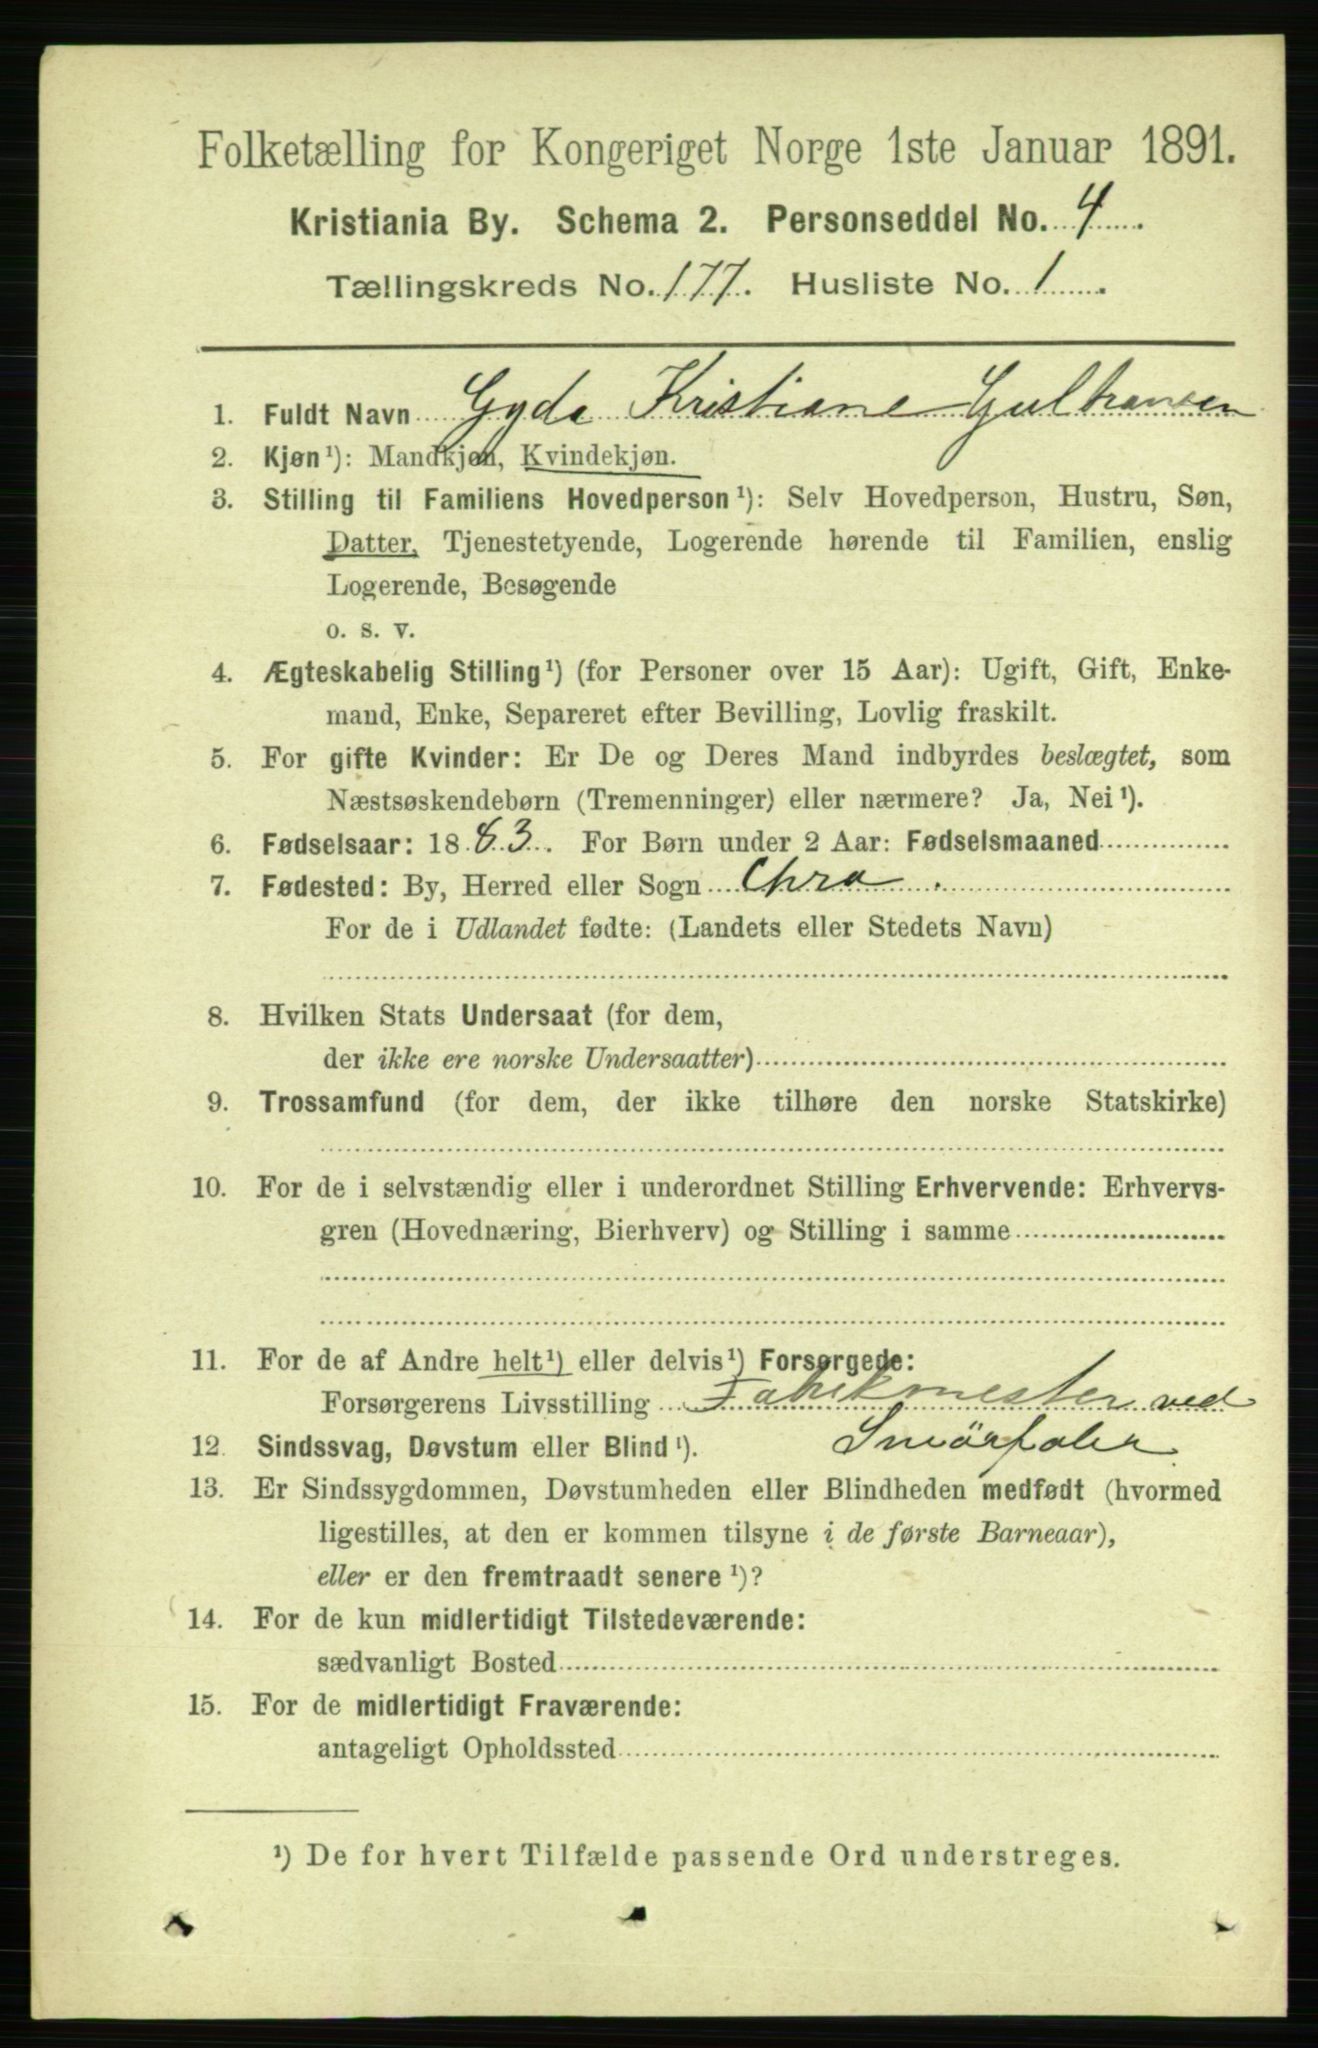 Folketælling for Kongeriget Norge 1ste Januar 1891.
Kristiania By. Schema 2. Personseddel No. 4
Tællingskreds No. 177. Husliste No. 1
1. Fuldt Navn Gyda Kristiane Gulhansen
2. Kjøn¹): Mandkjøn, Kvindekjøn.
3. Stilling til Familiens Hovedperson¹): Selv Hovedperson, Hustru, Søn,
Datter, Tjenestetyende, Logerende hørende til Familien, enslig
Logerende, Besøgende
o. s. v.
4. Ægteskabelig Stilling¹) (for Personer over 15 Aar): Ugift, Gift, Enke-
mand, Enke, Separeret efter Bevilling, Lovlig fraskilt.
5. For gifte Kvinder: Er De og Deres Mand indbyrdes beslægtet, som
Næstsøskendebørn (Tremenninger) eller nærmere? Ja, Nei¹).
6. Fødselsaar: 1883. For Børn under 2 Aar: Fødselsmaaned
7. Fødested: By, Herred eller Sogn Chra.
For de i Udlandet fødte: (Landets eller Stedets Navn)
8. Hvilken Stats Undersaat (for dem,
der ikke ere norske Undersaatter)
9. Trossamfund (for dem, der ikke tilhøre den norske Statskirke)
10. For de i selvstændig eller i underordnet Stilling Erhvervende: Erhvervs-
gren (Hovednæring, Bierhverv) og Stilling i samme
11. For de af Andre helt¹) eller delvis¹) Forsørgede:
Forsørgerens Livsstilling Fabrikmester ved
12. Sindssvag, Døvstum eller Blind¹). Smörfabr.
13. Er Sindssygdommen, Døvstumheden eller Blindheden medfødt (hvormed
ligestilles, at den er kommen tilsyne i de første Barneaar),
eller er den fremtraadt senere¹)?
14. For de kun midlertidigt Tilstedeværende:
sædvanligt Bosted
15. For de midlertidigt Fraværende:
antageligt Opholdssted
¹) De for hvert Tilfælde passende Ord understreges.